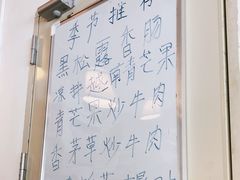 季节推荐
黑松露香肠
凉拌越南青芒果
青芒果炒牛肉
香茅草炒牛肉